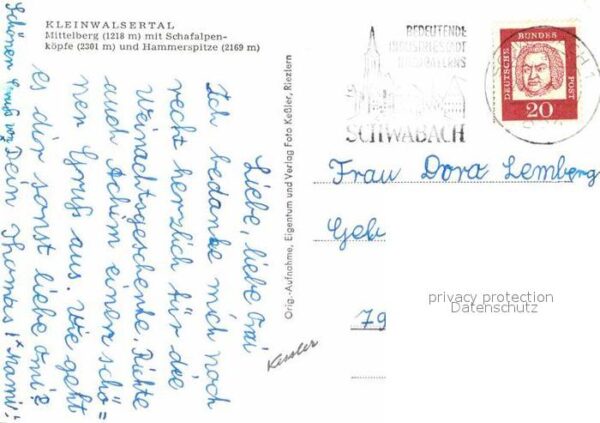 KLEINWALSERTAL
Mittelberg (1218 m) mit Schafalpen-
köpfe (2301 m) und Hammerspitze (2169 m)
Liebe, liebe Omi
Ich bedanke mich noch
recht herzlich für die
Weinachtsgeschenke. Richte
auch Achim einen schö=
nen Gruß aus. Wie geht
es dir sonst liebe Omi?
Dein Thomas!
Schönen Gruß von
Mami!
Orig.-Aufnahme, Eigentum und Verlag Foto Keßler, Riezlern
Kessler
BEDEUTENDE
INDUSTRIESTADT
NORDBAYERNS
SCHWABACH
DEUTSCHE BUNDES POST
20
Frau Dora Lemberg
Geb
79
privacy protection
Datenschutz